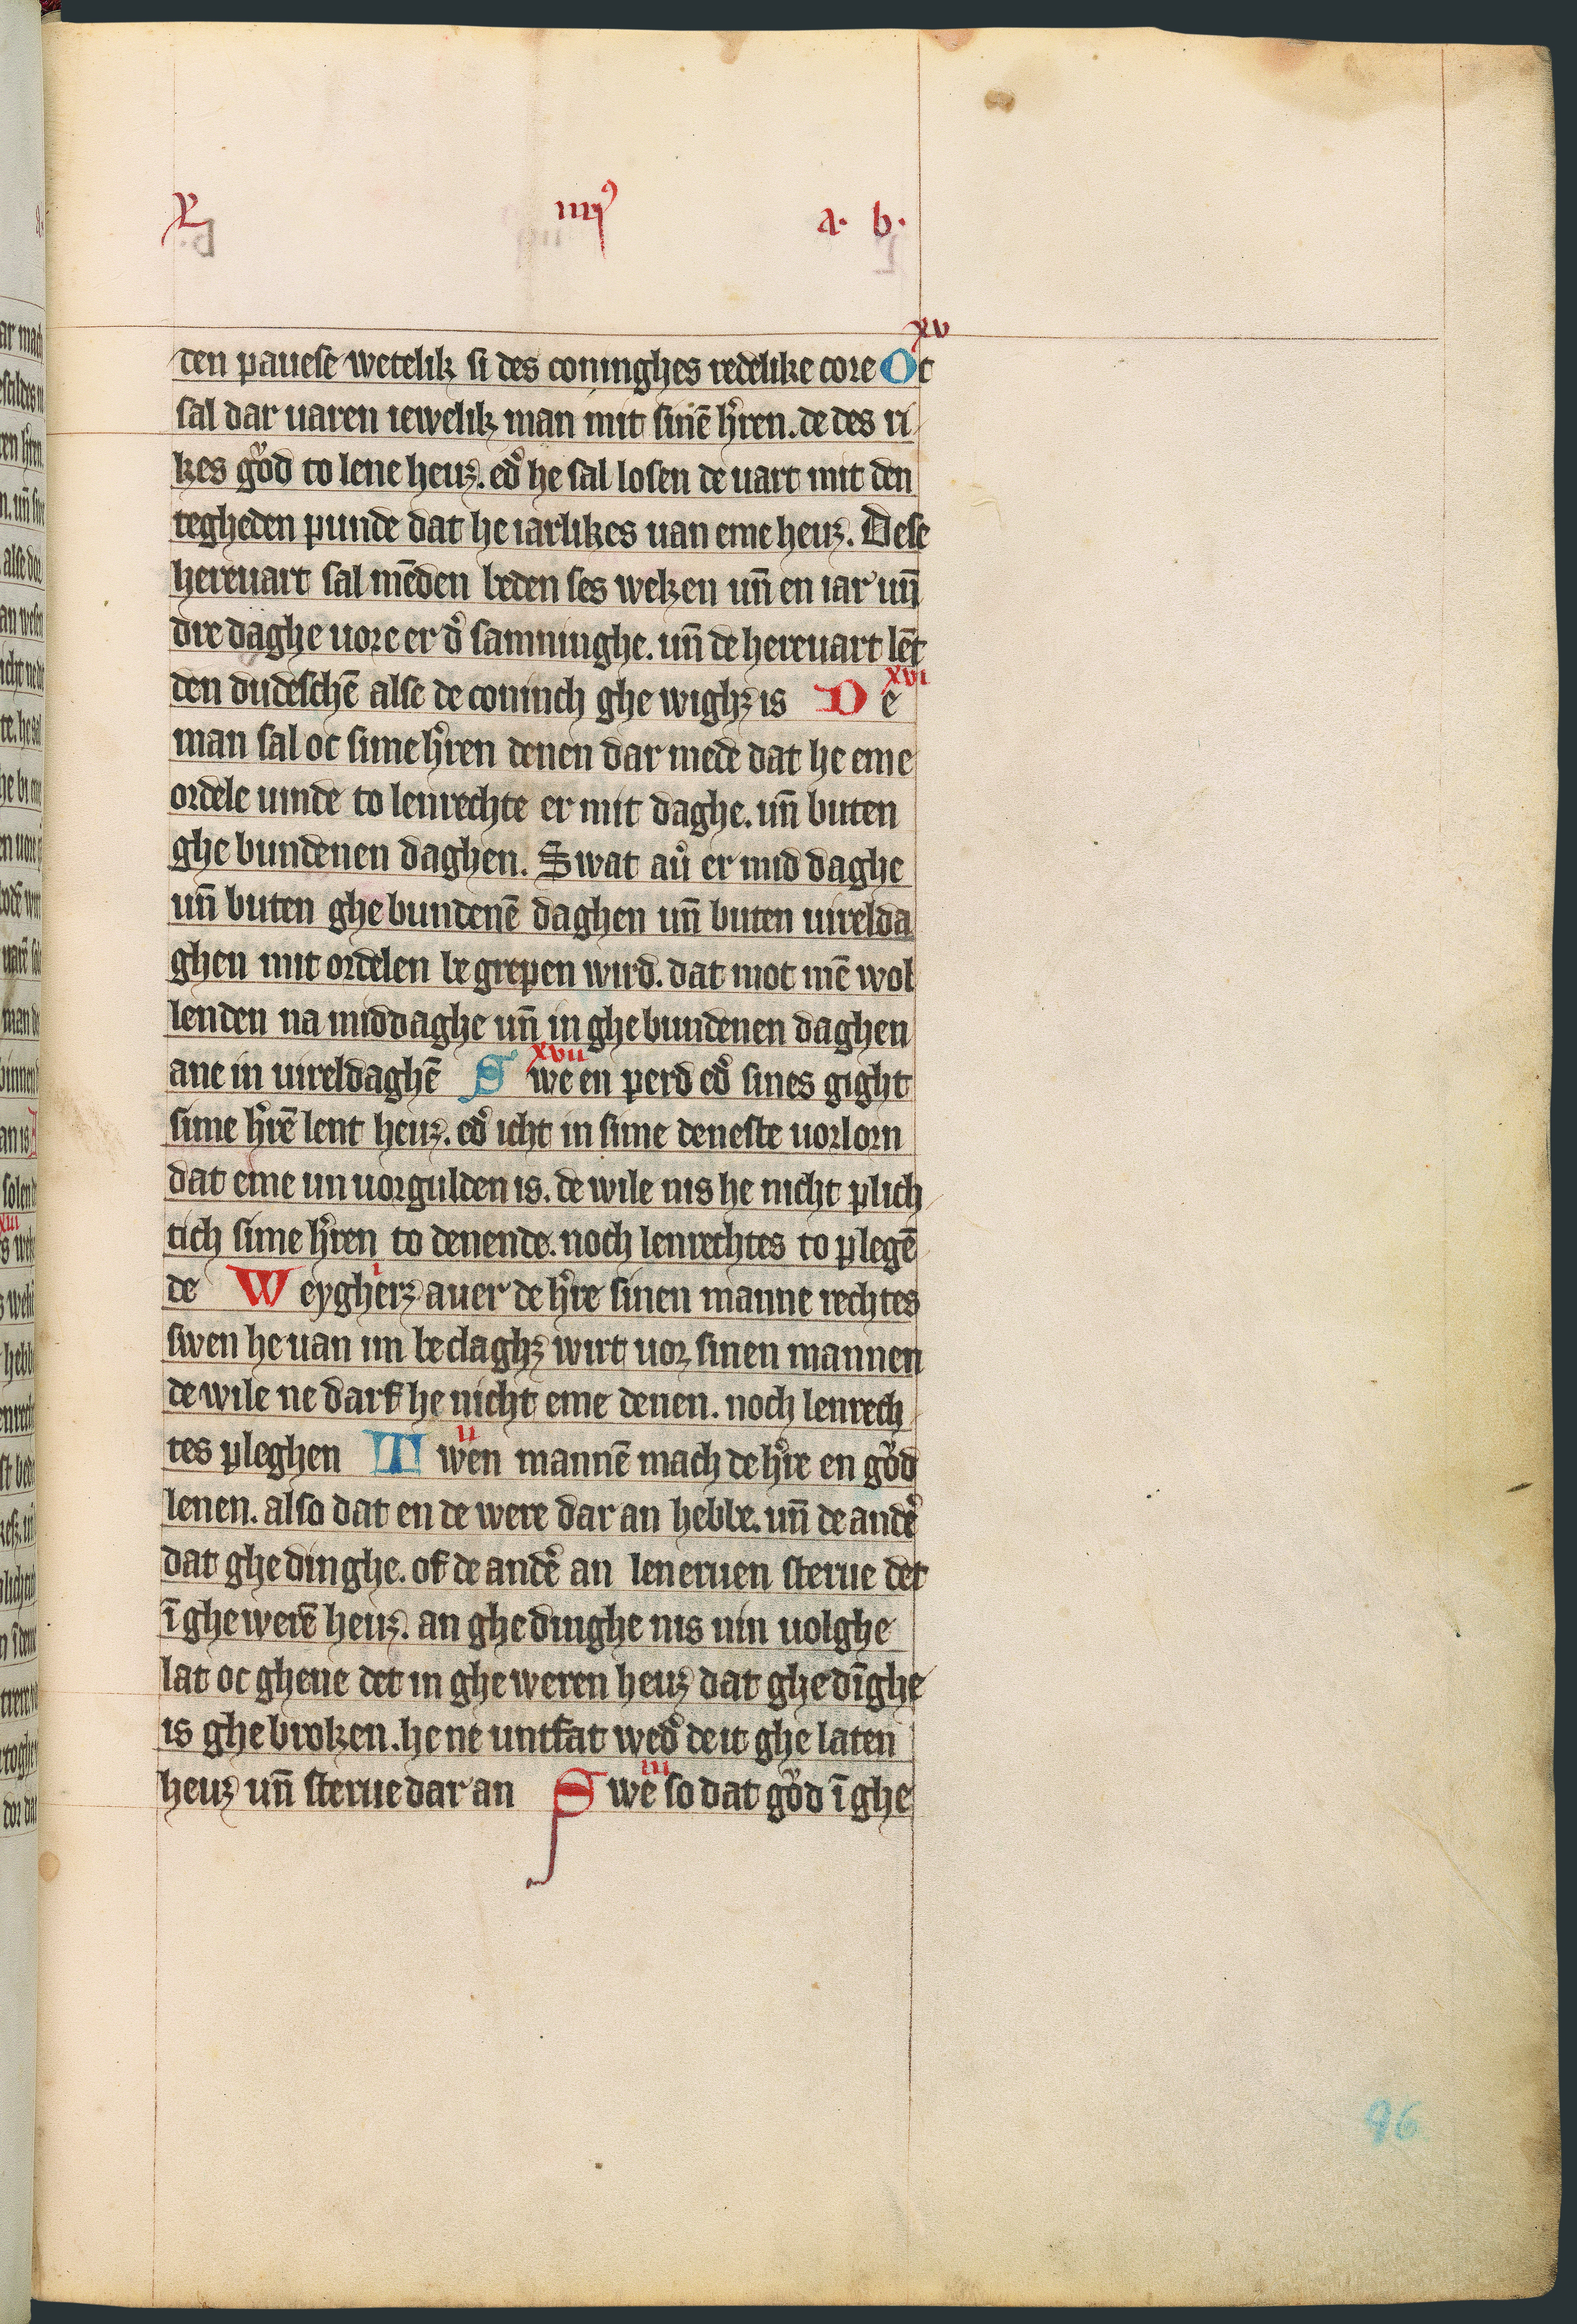 L iiij⁹ a. b.
xv
den pauese wetelik si des coninghes redelike core Ot
sal dar uaren iewelik man mit sinē h͛ren. de des ri
kes gůd to lene heuꝫ. ed͛ he sal losen de uart mit den
tegheden punde dat he iarlikes uan eme heuꝫ. Dese
hereuart sal mēden beden ses weken un̄ en iar un̄
dre daghe uore er d͛ samninghe. un̄ de hereuart lēt
xvi
den dudeschē alse de coninch ghe wighꝫ is De
man sal oc sime h͛ren denen dar mede dat he eme
ordele uinde to lenrechte er mit daghe. un̄ buten
ghe bundenen daghen. Swat au͛ er mid daghe
un̄ buten ghe bundenē daghen un̄ buten uirelda
ghen mit ordelen be grepen wird. dat mot mē wol
lenden na middaghe un̄ in ghe bundenen daghen
xvii
ane in uireldaghē Swe en perd ed͛ sines gight
sime h͛rē lent heuꝫ. ed͛ icht in sime deneste uorlorn
dat eme un uorgulden is. de wile nis he nicht plich
tich sime h͛ren to denende. noch lenrechtes to plegē
i
de Weygherꝫ auer de h͛re sinen manne rechtes
swen he uan im be claghꝫ wirt uor sinen mannen
de wile ne darf he nicht eme denen. noch lenrech
ii
tes pleghen Twen mannē mach de h͛re en gůd
lenen. also dat en de were dar an hebbe. un̄ de and͛e
dat ghe dinghe. of de and͛e an len eruen sterue det
ī ghe werē heuꝫ. an ghe dinghe nis nin uolghe
lat oc ghene det in ghe weren heuꝫ dat ghe dīghe
is ghe broken. he ne untfat wed͛ de it ghe laten
iii
heuꝫ un̄ sterue dar an Swe so dat gůd ī ghe
96